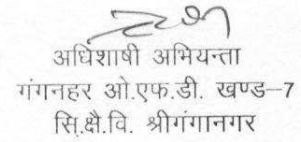 अधिशाषी अभियन्ता
गंगनहर ओ.एफ.डी. खण्ड–7
सि.क्षै.वि. श्रीगंगानगर